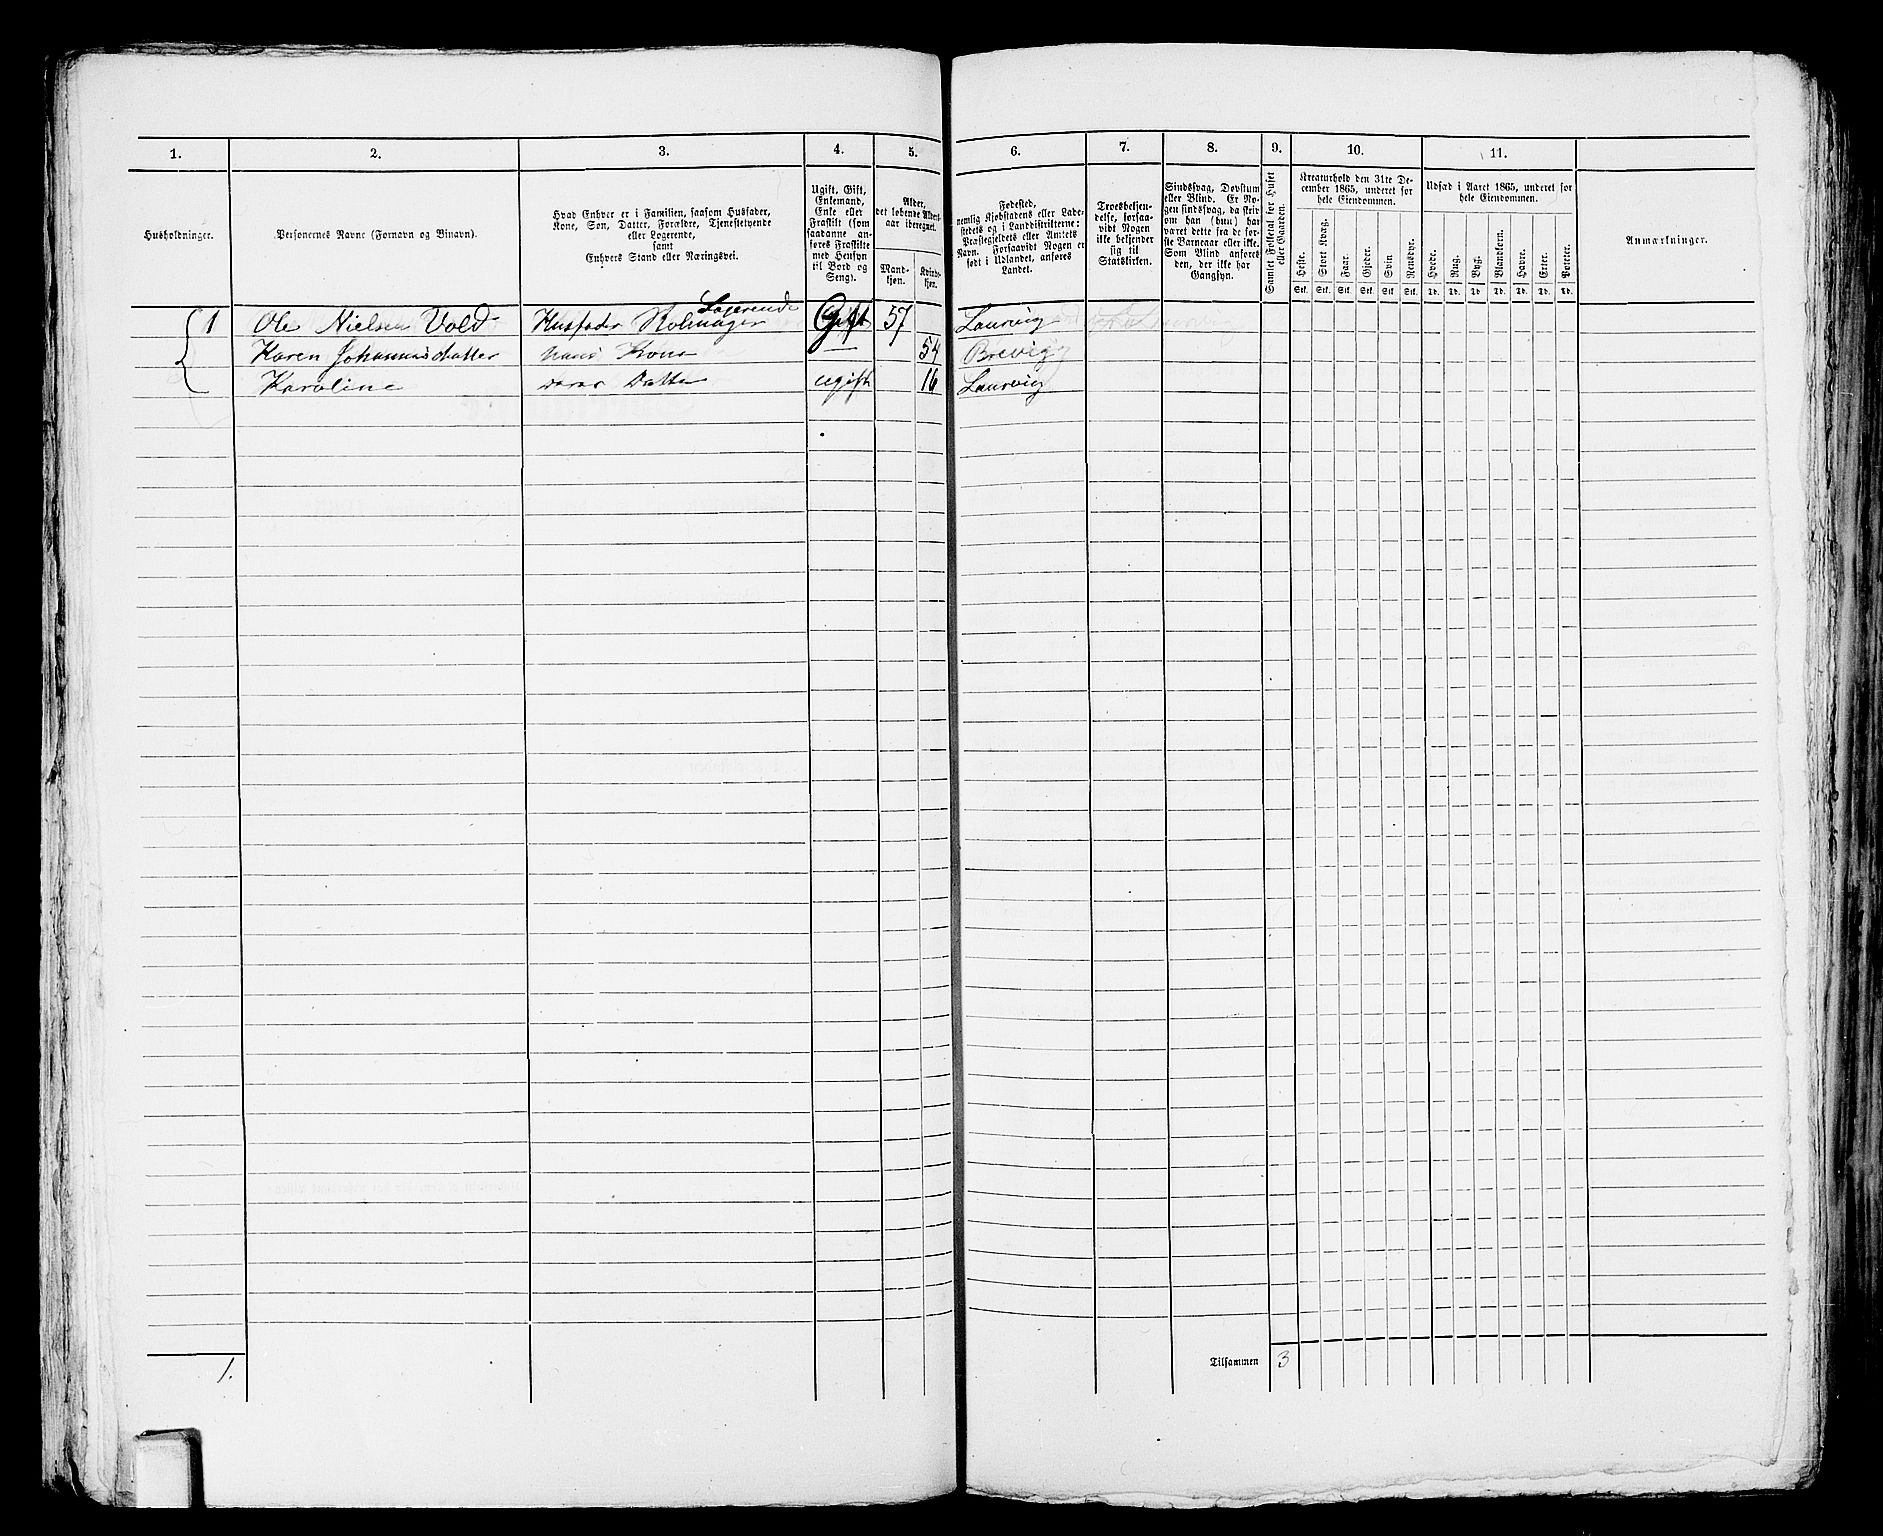 1. 2. 3. 4. 5. 6. 7. 8. 9. 10. 11.
Husholdninger.
Personernes Navne (Fornavn og Binavn).
Hvad Enhver er i Familien, saasom Husfader,
Kone, Søn, Datter, Forældre, Tjenestetyende
eller Logerende,
samt
Enhvers Stand eller Næringsvei.
Ugift, Gift,
Enkemand,
Enke eller
Fraskilt (som
saadanne an-
føres Fraskilte
med Hensyn
til Bord og
Seng).
Alder,
det løbende Alders-
aar iberegnet.
Mand-
kjøn.
Kvinde-
kjøn.
Fødested,
nemlig Kjøbstadens eller Lade-
stedets og i Landdistrikterne:
Præstegjeldets eller Amtets
Navn. Forsaavidt Nogen er
født i Udlandet, anføres
Landet.
Troesbekjen-
delse, forsaa-
vidt Nogen
ikke bekjender
sig til
Statskirken.
Sindssvag, Døvstum
eller Blind. Er No-
gen sindssvag, da skriv
om han (hun) har
været dette fra de før-
ste Barneaar eller ikke.
Som Blind anføres
den, der ikke har
Gangsyn.
Samlet Folketal for Huset
eller Gaarden.
Kreaturhold den 31te De-
cember 1865, underet for
hele Eiendommen.
Heste. Stort Kvæg. Faar. Gjeder. Svin Rensdyr.
Stk. Stk. Stk. Stk. Stk. Stk.
Udsæd i Aaret 1865, underet for
hele Eiendommen.
Hvede. Rug. Byg. Blandkorn. Havre. Erter. Poteter.
Td. Td. Td Td. Td. Td. Td.
Anmærkninger.
Logerende
1 Ole Nielsen Vold Husfader Gift 57 Laurvig
Karen Johannesdatter hans Kone 54 Brevig
Karoline deres Datter ugift 16 Laurvig
Tilsammen 3
1.